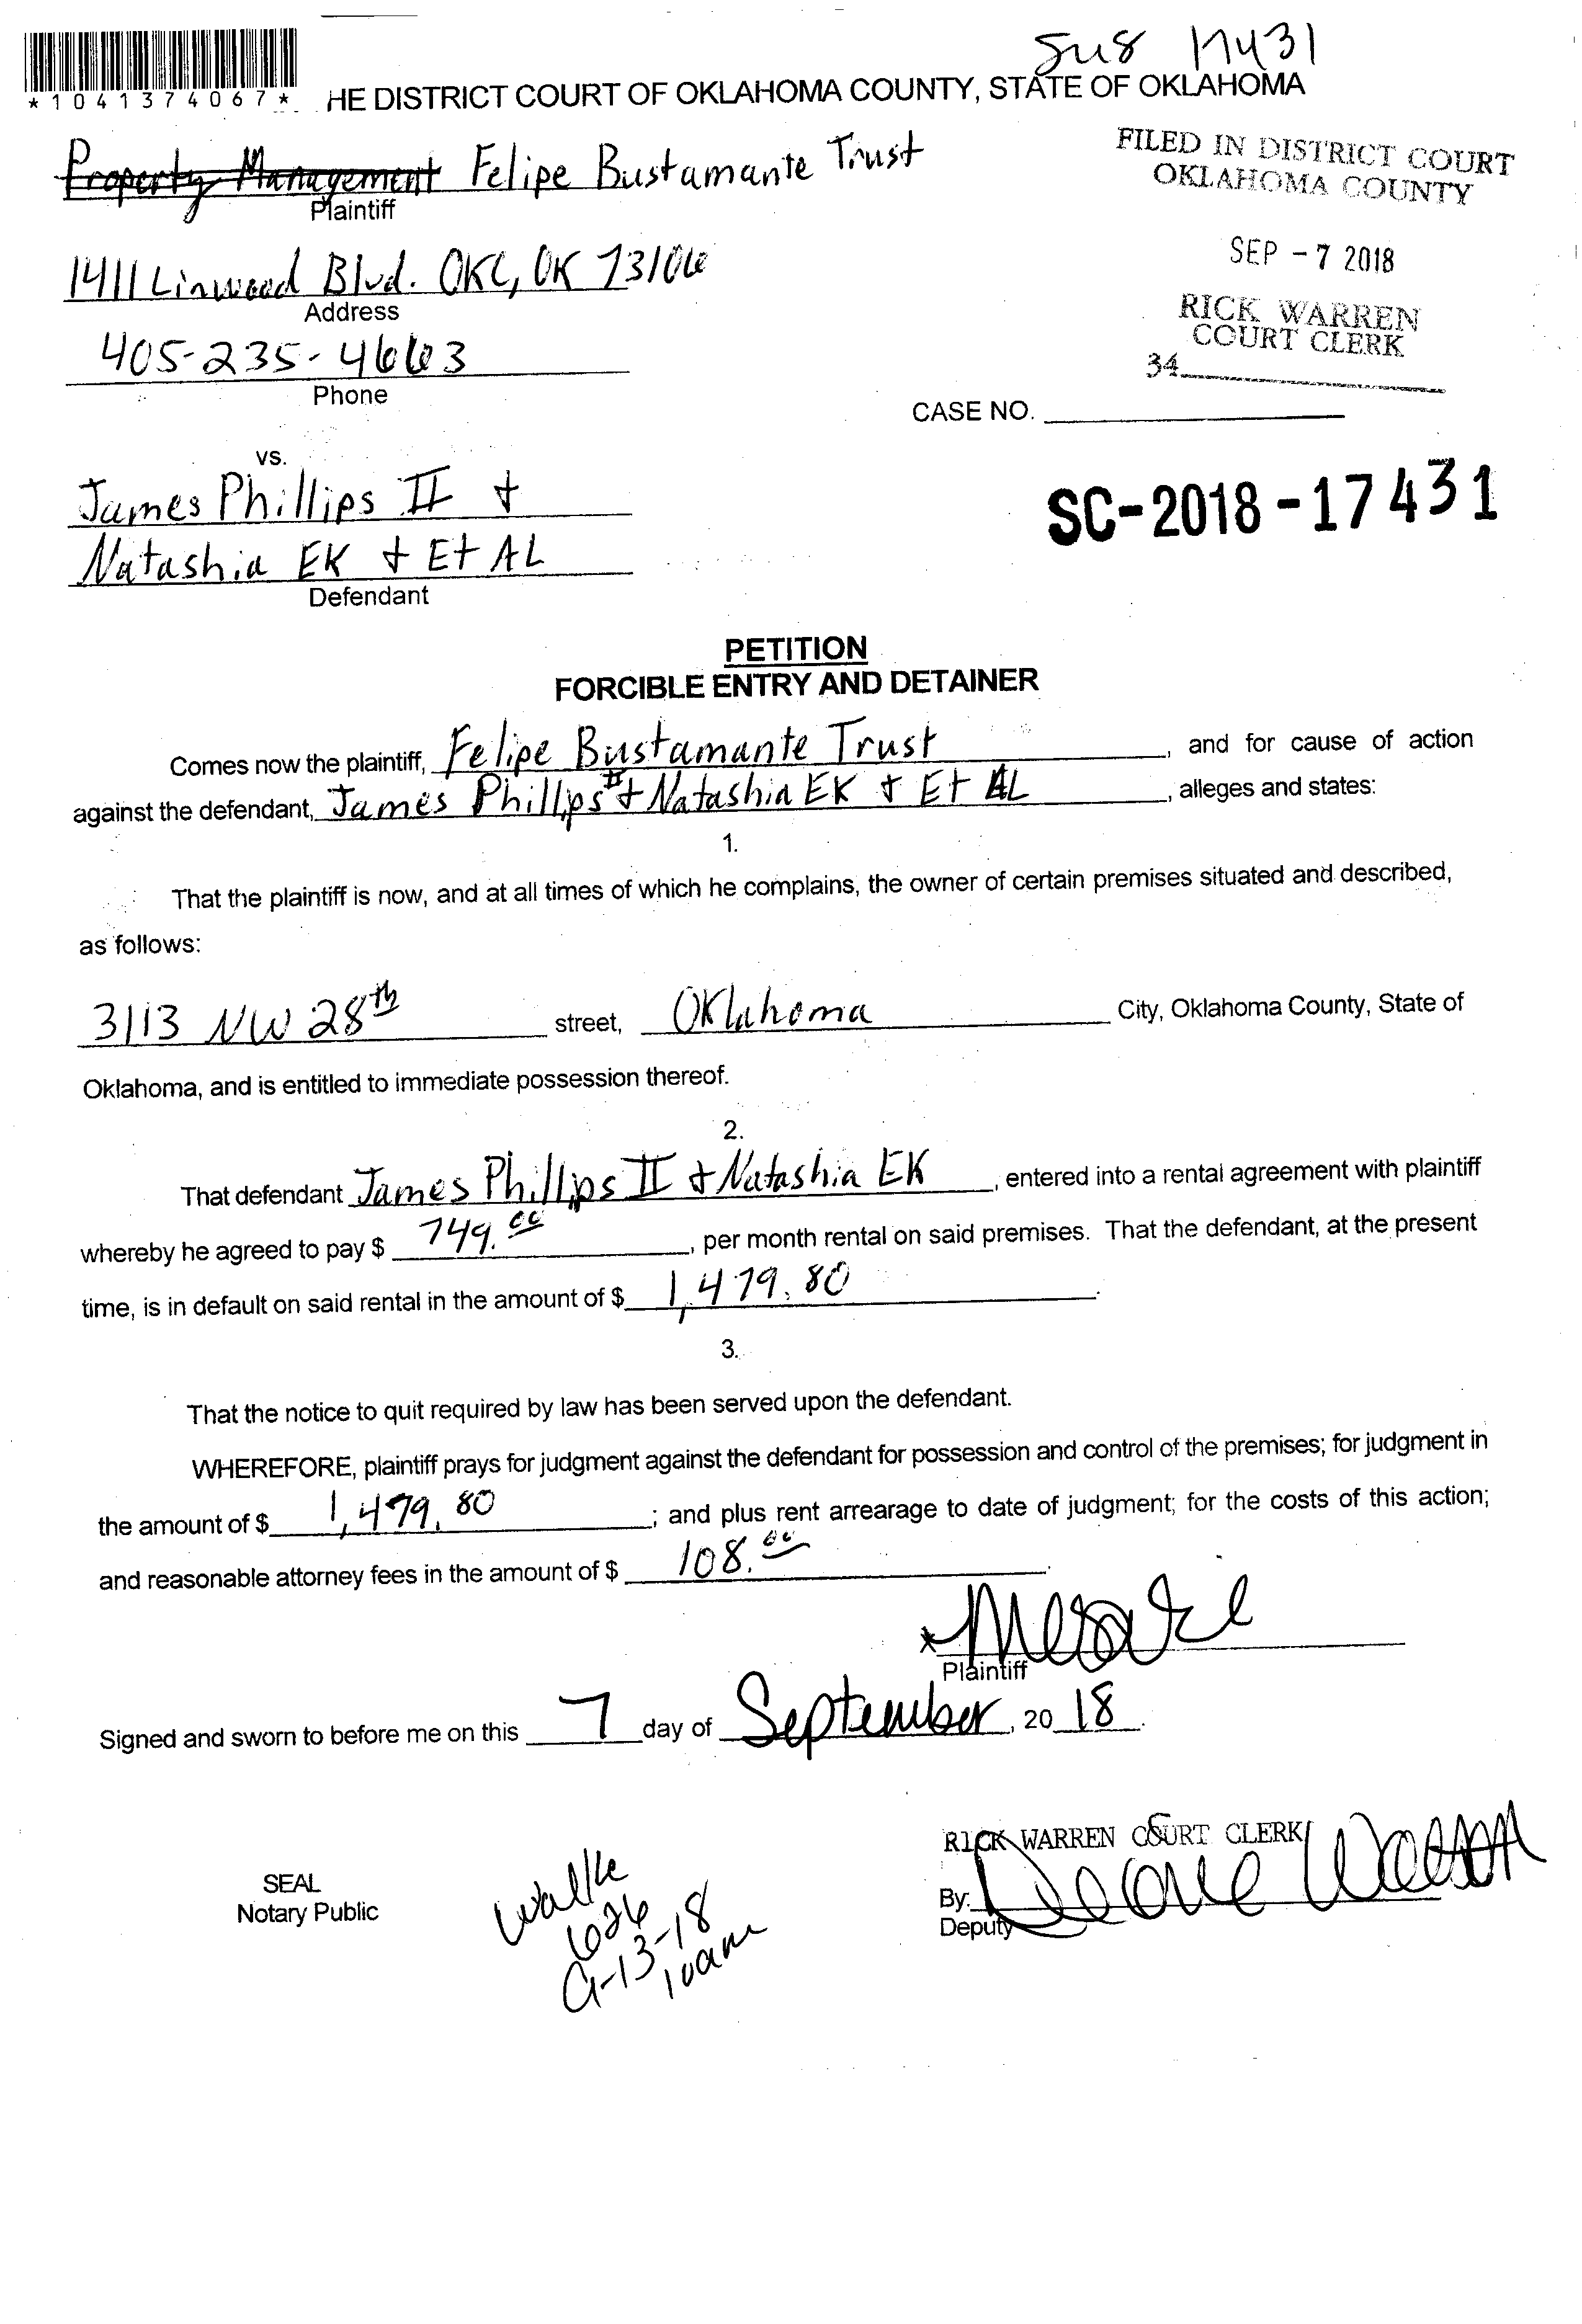 17431
*1041374067*
HE DISTRICT COURT OF OKLAHOMA COUNTY, STATE OF OKLAHOMA
Property Management Felipe Bustamante Trust
Plaintiff
FILED IN DISTRICT COURT
OKLAHOMA COUNTY
1411 Linwood Blvd. OKC, OK 73106
Address
SEP - 7 2018
405-235-4663
Phone
RICK WARREN
COURT CLERK
34
CASE NO.
vs.
James Phillips II +
Natashia EK + Et AL
Defendant
SC-2018-17431
PETITION
FORCIBLE ENTRY AND DETAINER
Comes now the plaintiff, Felipe Bustamante Trust, and for cause of action
against the defendant, James Phillips II + Natashia EK + Et AL, alleges and states:
1.
That the plaintiff is now, and at all times of which he complains, the owner of certain premises situated and described,
as follows:
3113 NW 28th street, Oklahoma City, Oklahoma County, State of
Oklahoma, and is entitled to immediate possession thereof.
2.
That defendant James Phillips II + Natashia EK, entered into a rental agreement with plaintiff
whereby he agreed to pay $ 749.00, per month rental on said premises. That the defendant, at the present
time, is in default on said rental in the amount of $ 1,479.80.
3.
That the notice to quit required by law has been served upon the defendant.
WHEREFORE, plaintiff prays for judgment against the defendant for possession and control of the premises; for judgment in
the amount of $ 1,479.80; and plus rent arrearage to date of judgment; for the costs of this action;
and reasonable attorney fees in the amount of $ 108.00.
Plaintiff
Signed and sworn to before me on this 7 day of September, 2018.
SEAL
Notary Public
626
9-13-18
10am
RICK WARREN COURT CLERK
By:
Deputy